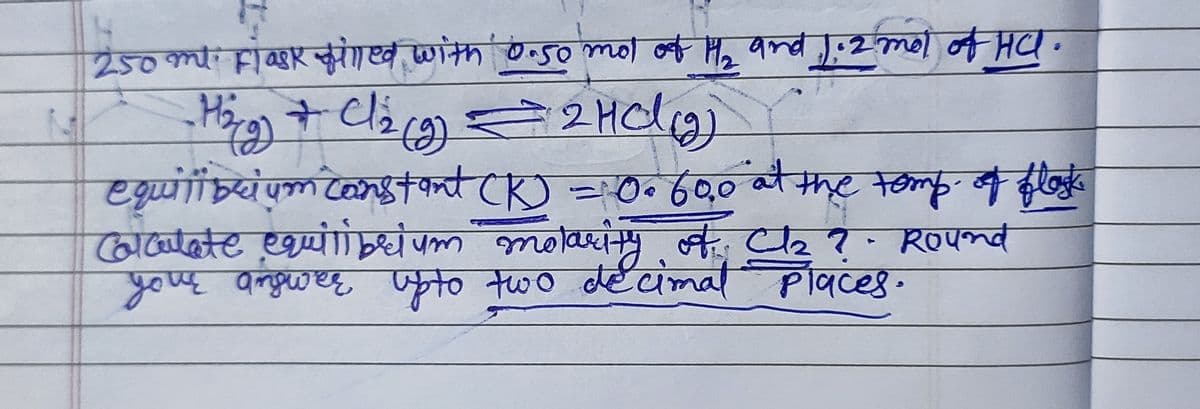 250 ml. Flask filled with 0.50 mol of H₂ and 1.2 mol of HCl.
H₂(g) + Cl₂(g) ⇌ 2HCl(g)
equilibrium constant (K) = 0.600 at the temp. of flask
Calculate equilibrium molarity of Cl₂ ? . Round
your answer upto two decimal places.